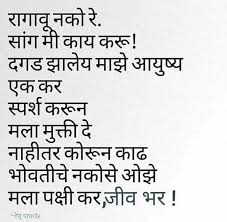 रागावू नको रे.
सांग मी काय करू!
दगड झालेय माझे आयुष्य
एक कर
स्पर्श करून
मला मुक्ती दे
नाहीतर कोरून काढ
भोवतीचे नकोसे ओझे
मला पक्षी कर,जीव भर !